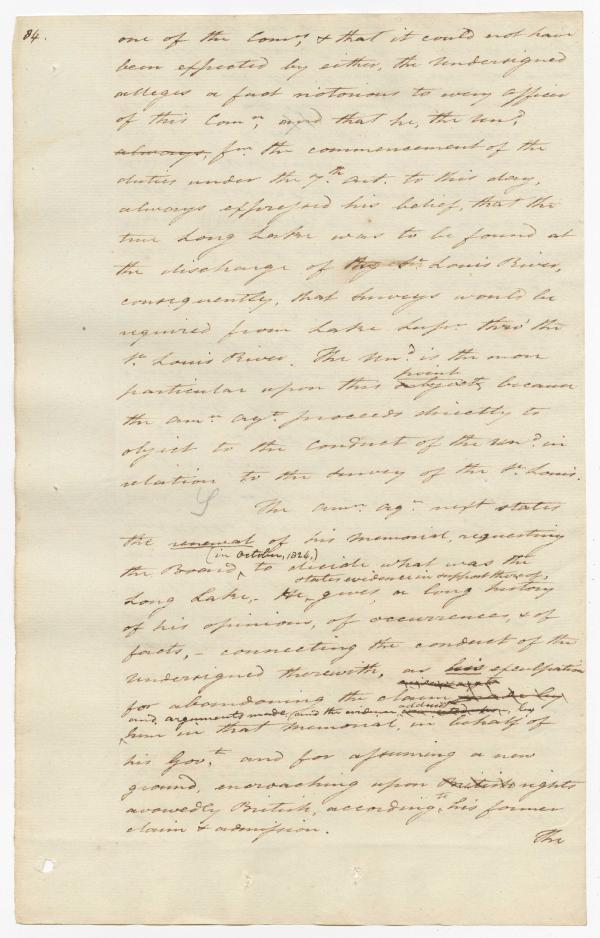 84.
one of the Comrs, & that it could not have
been effected by either, the Undersigned
alleges a fact notorious to every officer
of this Comn, and that he, the Und,
always, fm the commencement of the
duties under the 7th art. to this day,
always expressed his belief, that the
true Long Lake was to be found at
the discharge of the St Louis River,
consequently, that surveys would be
required from Lake Supr thro' the
St Louis River. The Und is the more
point
particular upon this subject, because
the Amn agt proceeds directly to
object to the conduct of the Und in
relation to the survey of the St Louis.
The Amn agt next states
the renewal of his memorial, requesting
(in October, 1824,)
the Board, to decide what was the
states evidence in support thereof,
Long Lake, - He, gives a long history
of his opinions, of occurrences, & of
facts, - connecting the conduct of the
undersigned therewith, as his exculpation
for abandoning the claim made by
and arguments made (and the evidence adduced by
him in that memorial, in behalf of
his Govt, and for assuming a new
ground, encroaching upon British rights
avowedly British, according to his former
claim & admission.
The